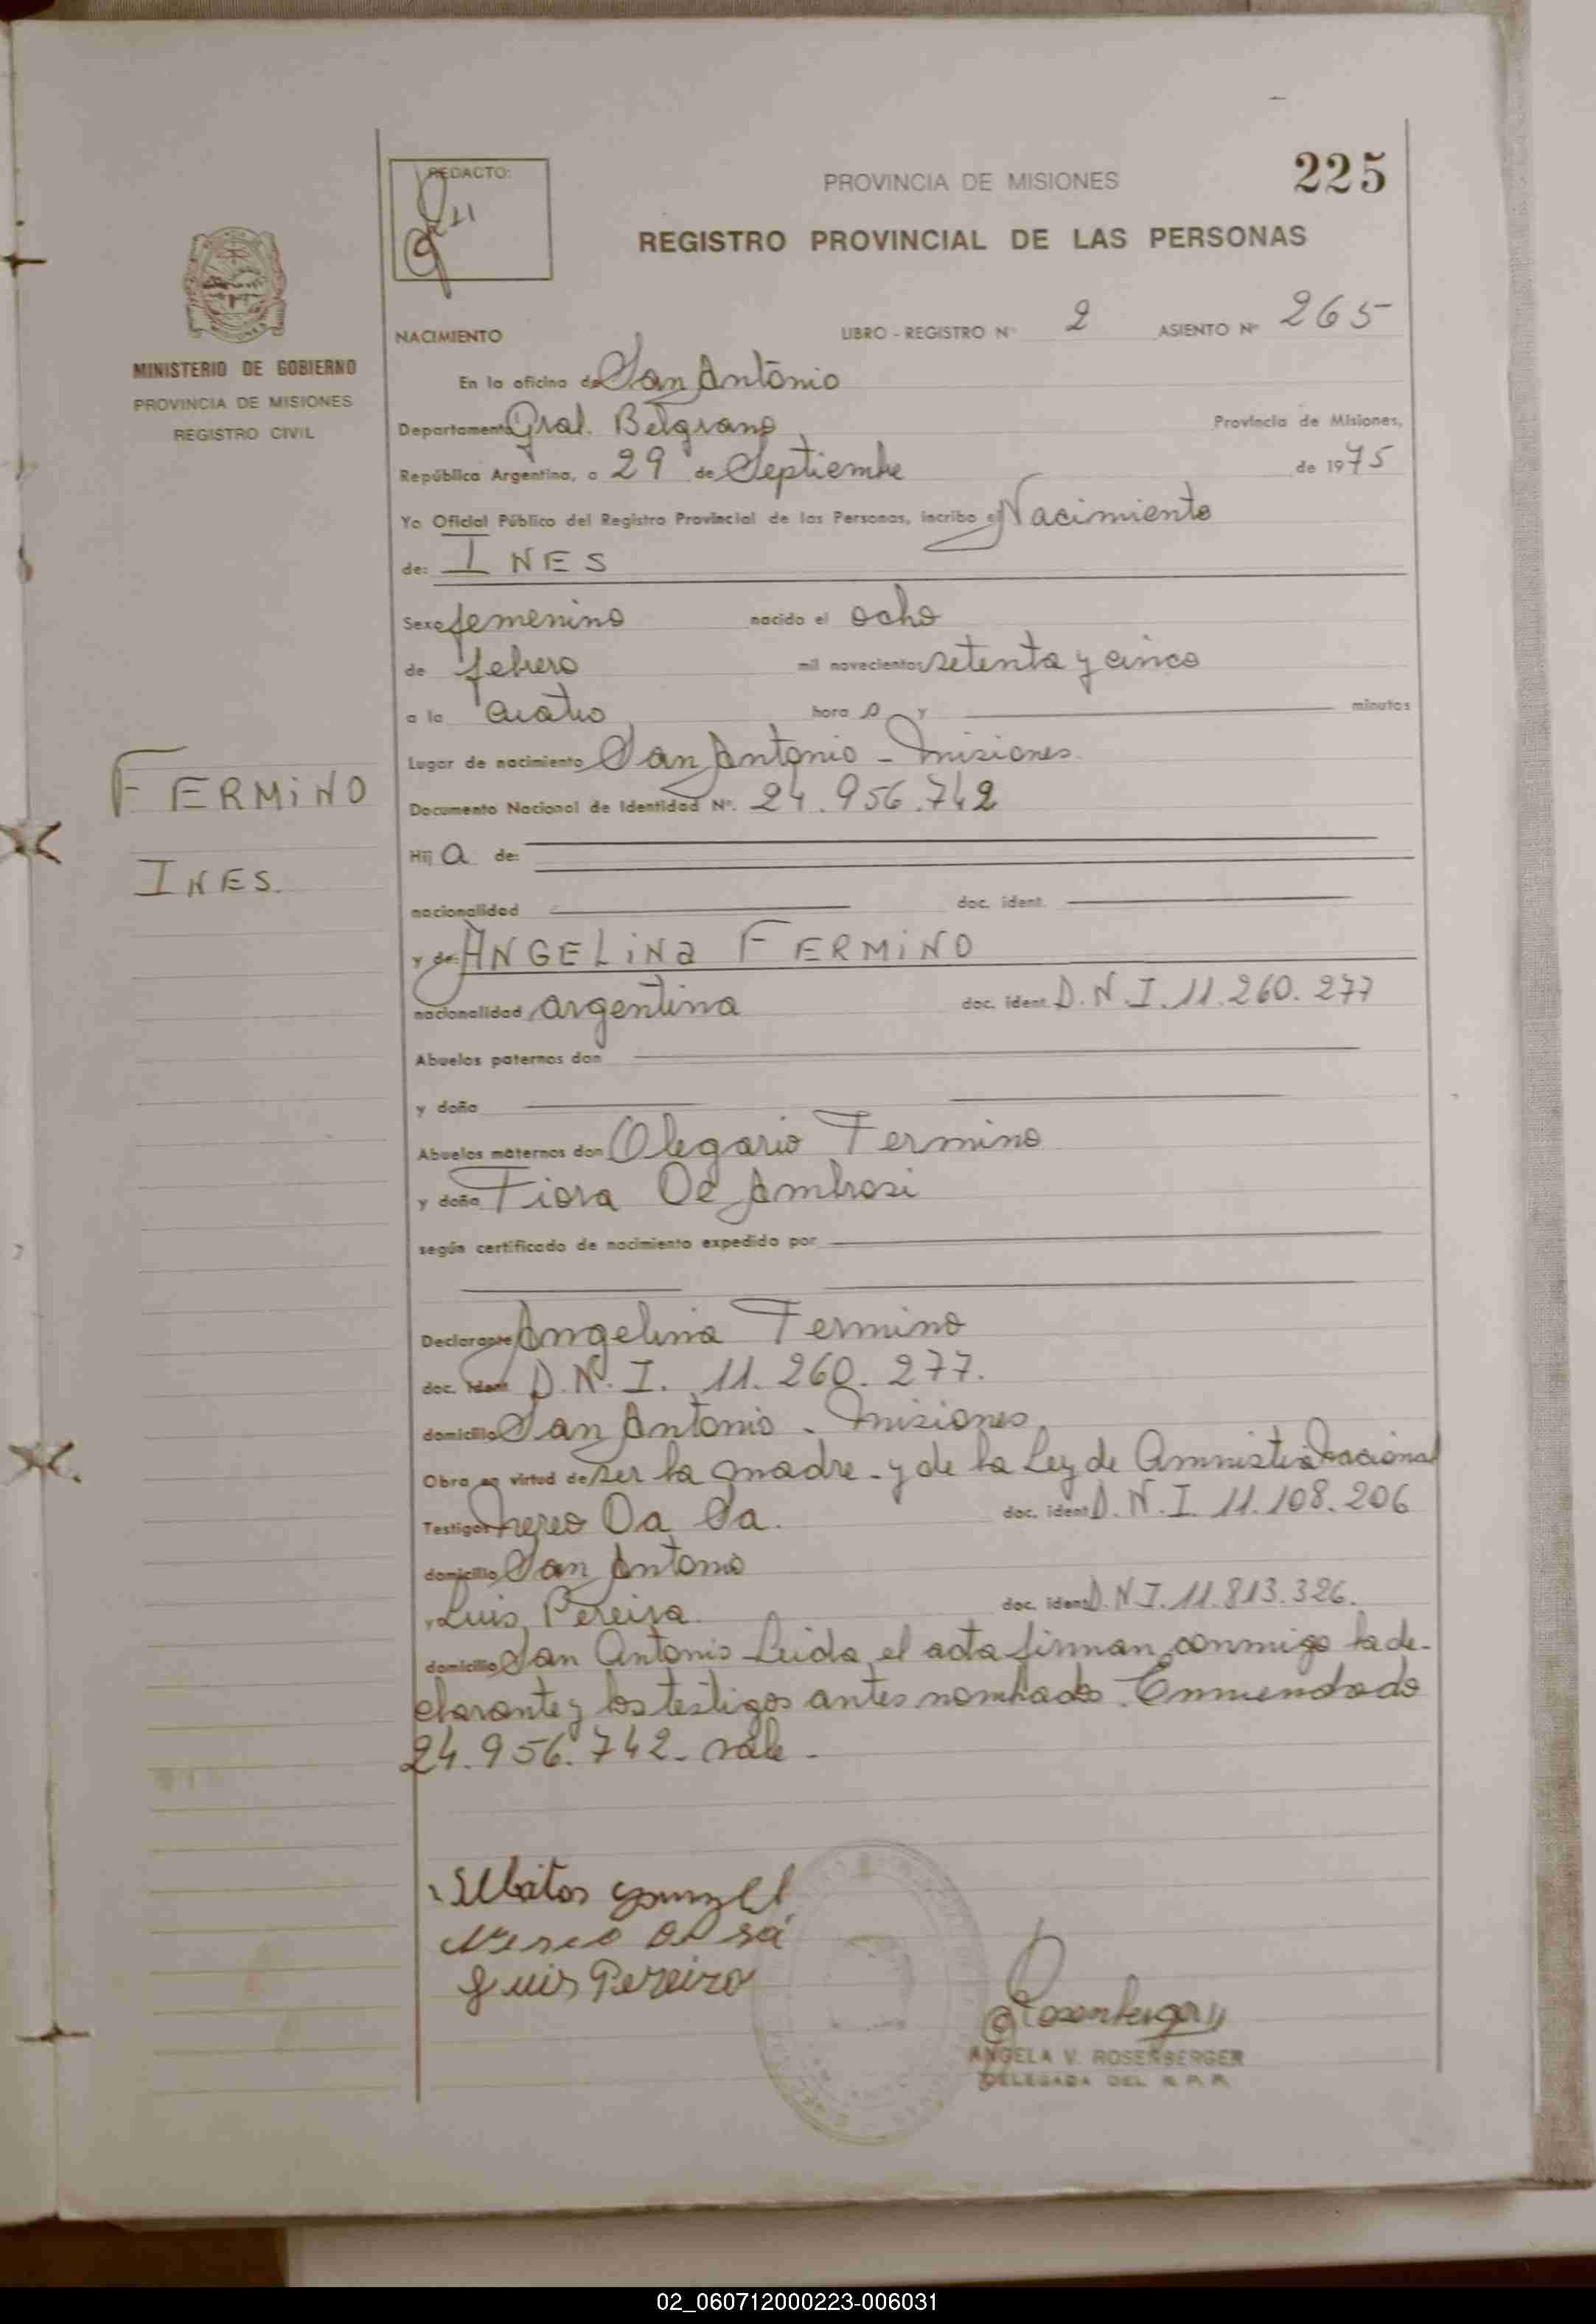 REDACTO:
PROVINCIA DE MISIONES
225
REGISTRO PROVINCIAL DE LAS PERSONAS
MINISTERIO DE GOBIERNO
PROVINCIA DE MISIONES
REGISTRO CIVIL
NACIMIENTO LIBRO - REGISTRO Nº 2 ASIENTO Nº 265
En la oficina de San Antonio
Departamento Gral. Belgrano Provincia de Misiones,
República Argentina, a 29 de Septiembre de 1975
Yo Oficial Público del Registro Provincial de las Personas, incribo el Nacimiento
de: INES
Sexo femenino nacido el ocho
de febrero mil novecientos setenta y cinco
a la cuatro hora s y minutos
Lugar de nacimiento San Antonio - Misiones.
FERMINO
Documento Nacional de Identidad Nº. 24.956.742
Hij a de:
INES.
nacionalidad doc. ident.
y de: ANGELINA FERMINO
nacionalidad argentina doc. ident. D.N.I. 11.260.277
Abuelos paternos don
y doña
Abuelos maternos don Olegario Fermino
y doña Fiora De Ambrosi
según certificado de nacimiento expedido por
Declarante Angelina Fermino
doc. ident. D.N.I. 11.260.277.
domicilio San Antonio - Misiones
Obra en virtud de ser la madre - y de la Ley de Amnistia Nacional
Testigos Nereo Da Sa. doc. ident. D.N.I. 11.108.206
domicilio San Antonio
y Luis Pereira. doc. ident. D.N.I. 11.813.326.
domicilio San Antonio Leida el acta firman conmigo la de-
clarante y los testigos antes nombrados. Enmendado
24.956.742 - vale -
Nereo Da Sá
Luis Pereira
Rosenberger
ANGELA V. ROSENBERGER
DELEGADA DEL R. P. P.
02_060712000223-006031